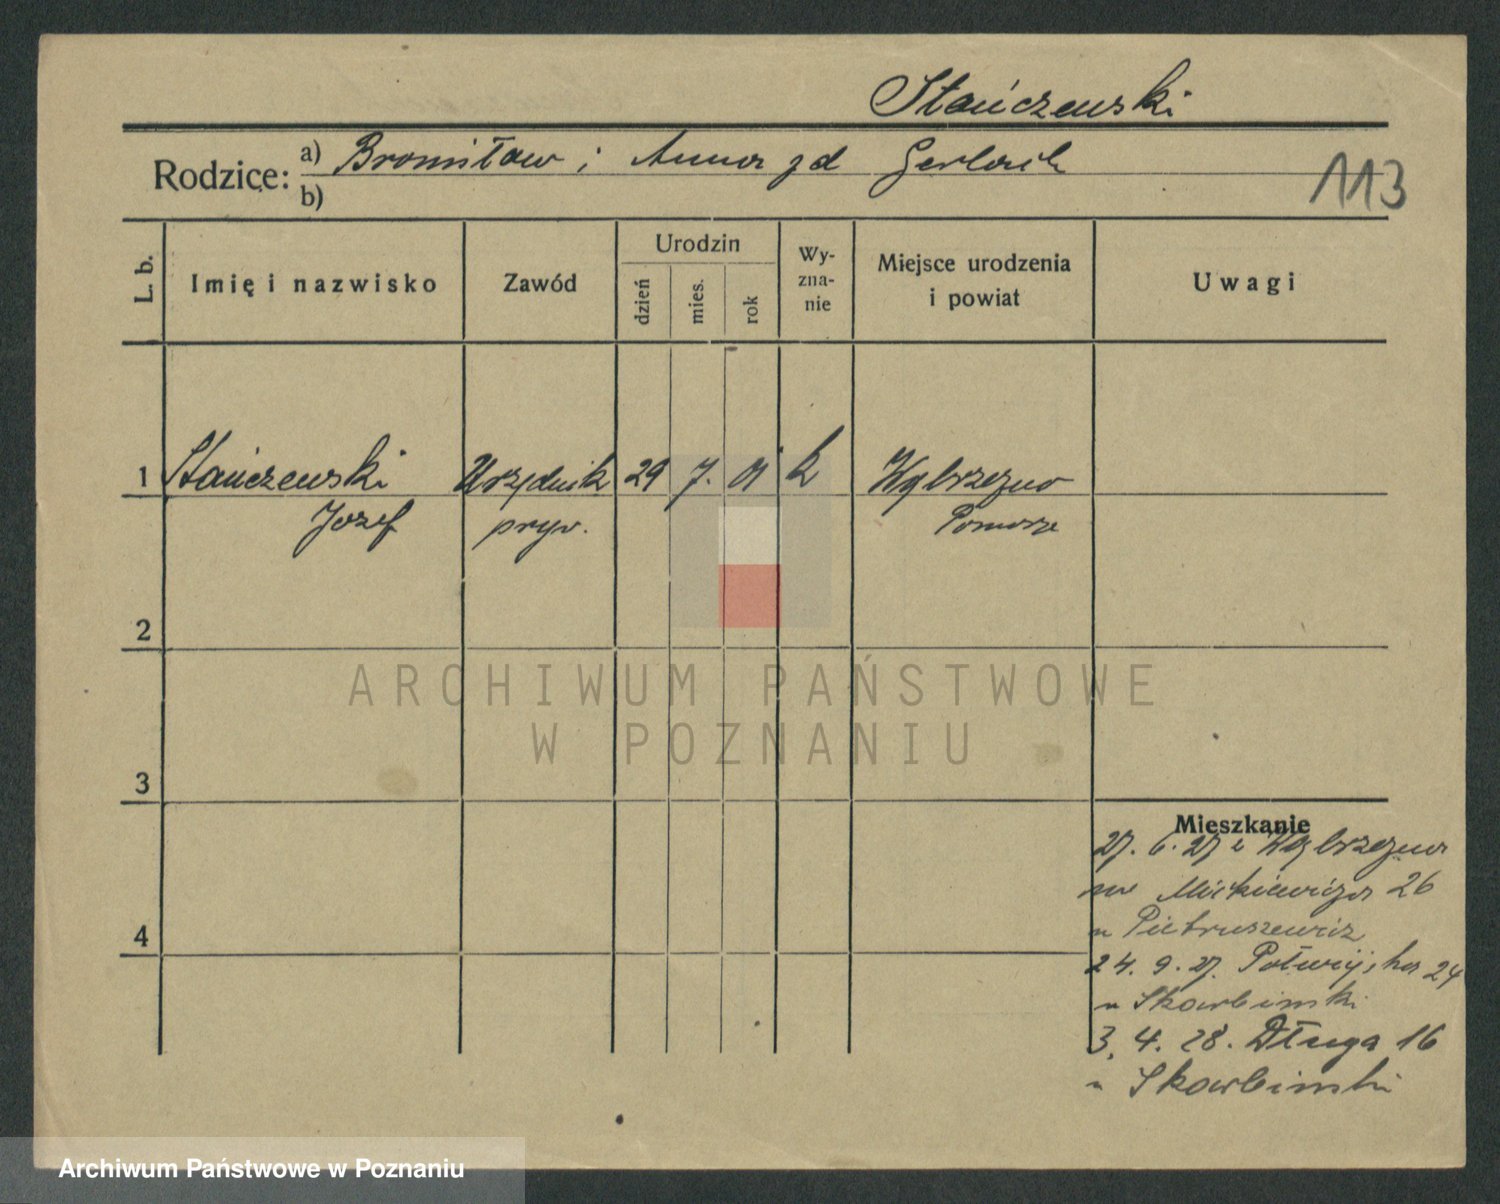 Stańczewski
Rodzice: a) Bronisław i Anna zd Gerlach
b)
113
L. b.
Imię i nazwisko
Zawód
Urodzin
dzień
mies.
rok
Wy-
zna-
nie
Miejsce urodzenia
i powiat
Uwagi
1 Stańczewski Urzędnik 29 7. 01 k Wąbrzezno
Jozef pryw. Pomorze
2
3
4
Mieszkanie
27. 6. 27 z Wąbrzezna
na Mickiewicza 26
u Pietruszewicz
24. 9. 27. Półwiejska 24
u Skarbinski
3. 4. 28. Długa 16
u Skarbinski
ARCHIWUM PAŃSTWOWE
W POZNANIU
Archiwum Państwowe w Poznaniu